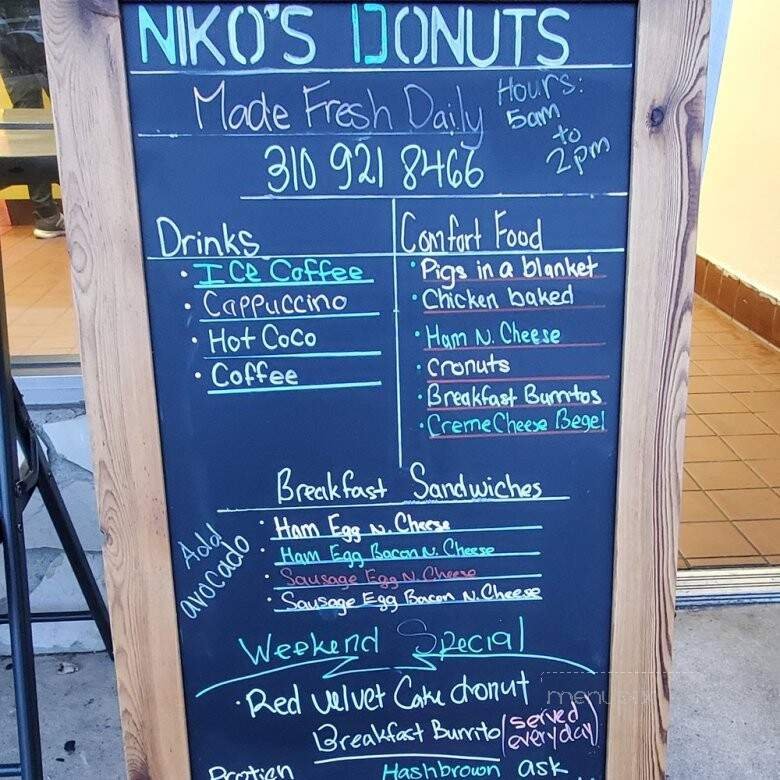 NIKO'S DONUTS
Made Fresh Daily
Hours:
5am
to
2pm
310 921 8466
Drinks
• ICe Coffee
• Cappuccino
• Hot CoCo
• Coffee
Comfort Food
• Pigs in a blanket
• Chicken baked
• Ham N. Cheese
• Cronuts
• Breakfast Burritos
• Creme Cheese Begel
Breakfast Sandwiches
Add
avocado
• Ham Egg N. Cheese
• Ham Egg Bacon N. Cheese
• Sausage Egg N. Cheese
• Sausage Egg Bacon N. Cheese
Weekend Special
• Red Velvet Cake donut
Breakfast Burrito (served
everyday)
Protien Hashbrown ask